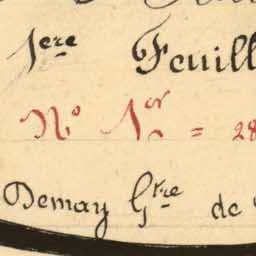 1ere Feuill
No 1er = 28
Demay Gtre de